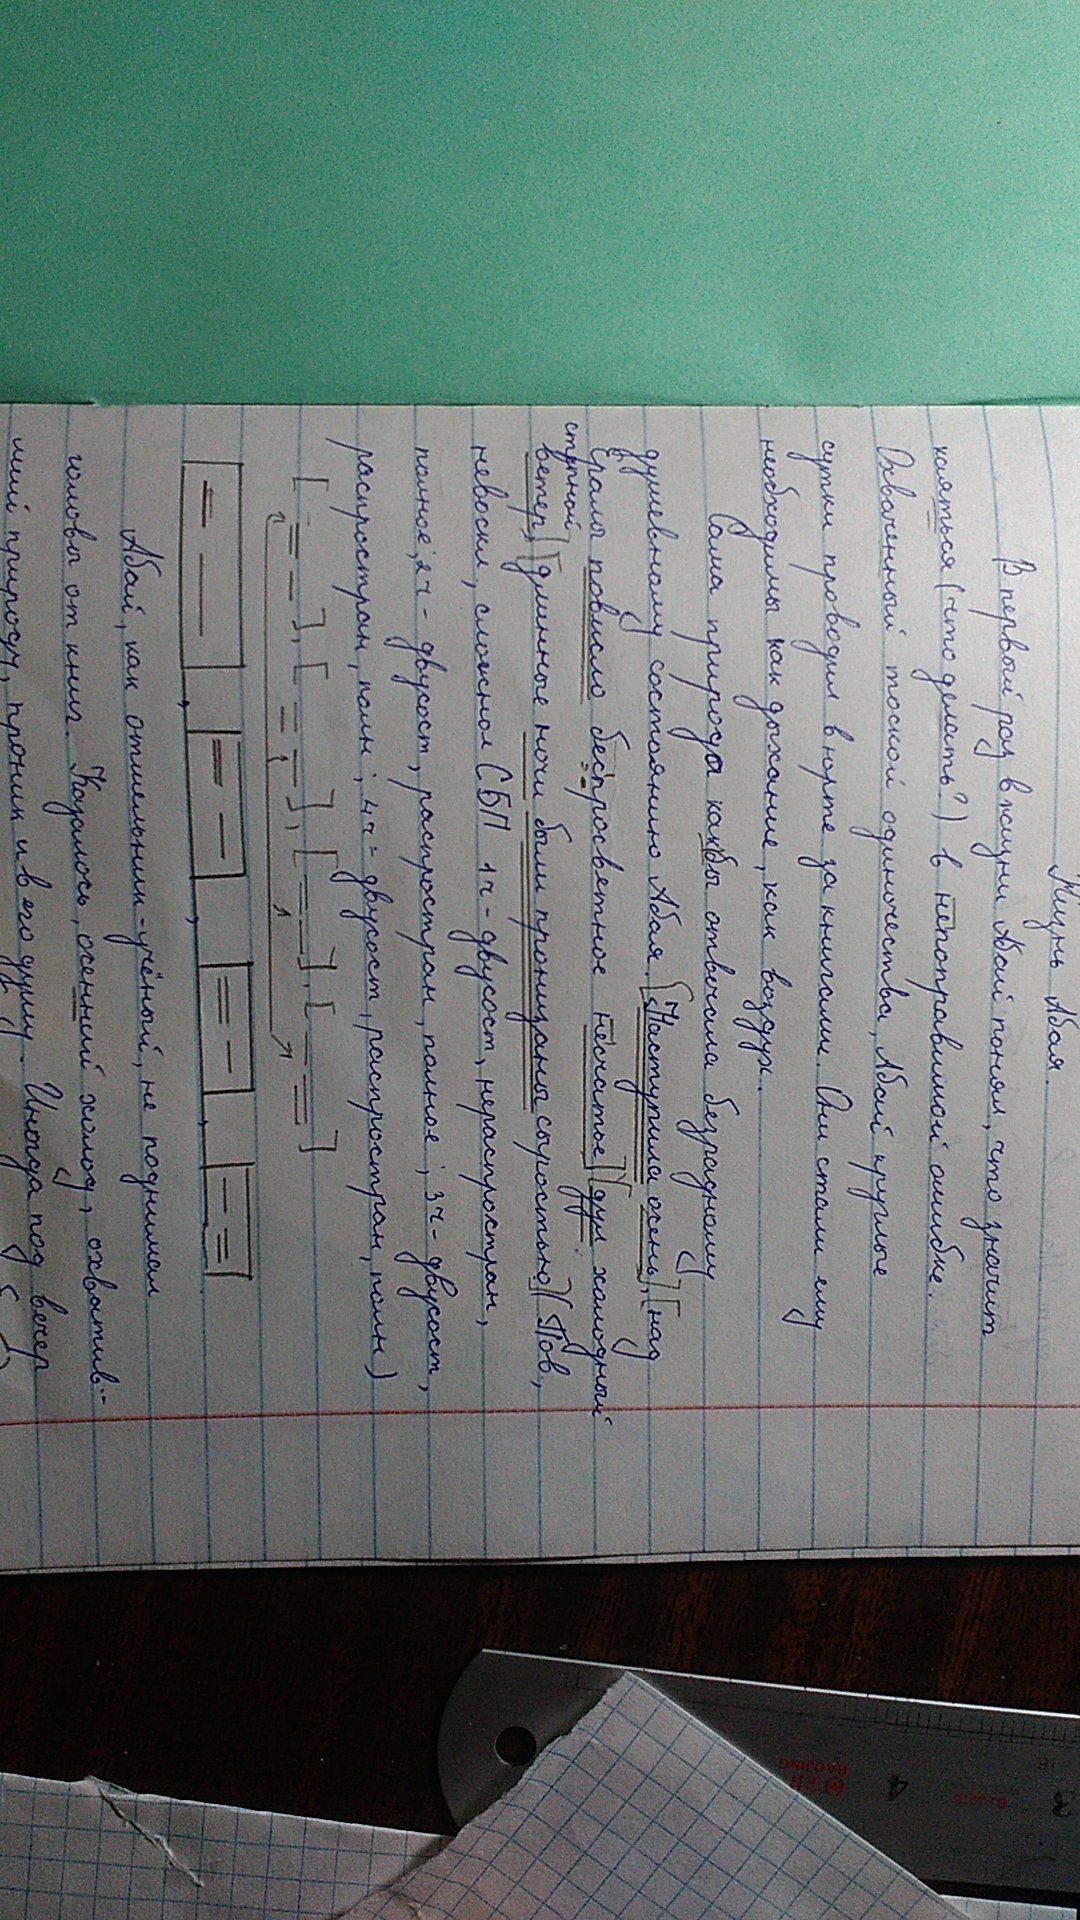 Жизнь Абая.
В первый раз в жизни Абай понял, что значит
каяться (что делать?) в непоправимой ошибке.
Охваченный тоской одиночества, Абай круглые
сутки проводил в юрте за книгами. Они стали ему
необходимы как дыхание, как воздух.
Сама природа как бы отвечала безрадному
душевному состоянию Абая. [Наступила осень], [над
страной повисло беспросветное несчатье] [дул холодный
ветер], [длинные ночи были пронизаны сыростью] (Пов.,
невоскл, сложное СБП 1ч - двусост, нераспростран,
полное; 2ч - двусост, распростран, полное; 3ч - двусост,
распростран, полн; 4ч - двусост, распростран, полн)
[ = - ], [ = - ], [ = - ], [ - = ]
Абай, как отшельник-учёный, не поднимал
головы от книг. Казалось, осенний холод, охватив-
ший природу, проник и в его душу. Иногда под вечер
3
4